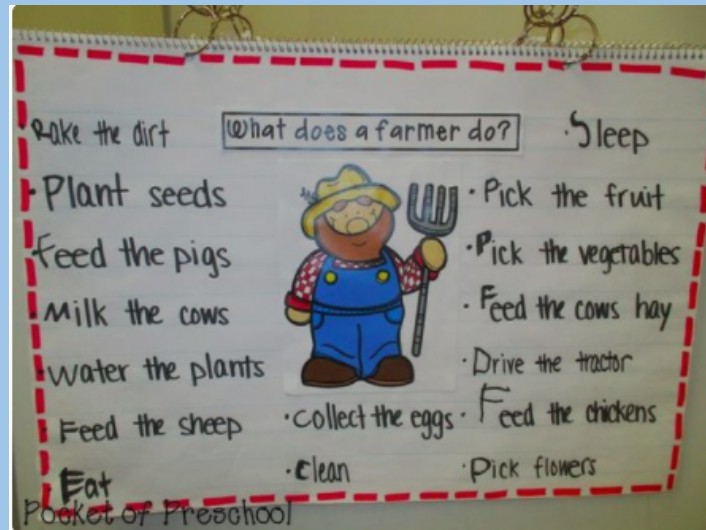 What does a farmer do?
Rake the dirt
· Plant seeds
· Feed the pigs
· Milk the cows
· Water the plants
· Feed the sheep
· Eat
· Collect the eggs
· Clean
· Sleep
· Pick the fruit
· Pick the vegetables
· Feed the cows hay
· Drive the tractor
· Feed the chickens
· Pick flowers
Pocket of Preschool